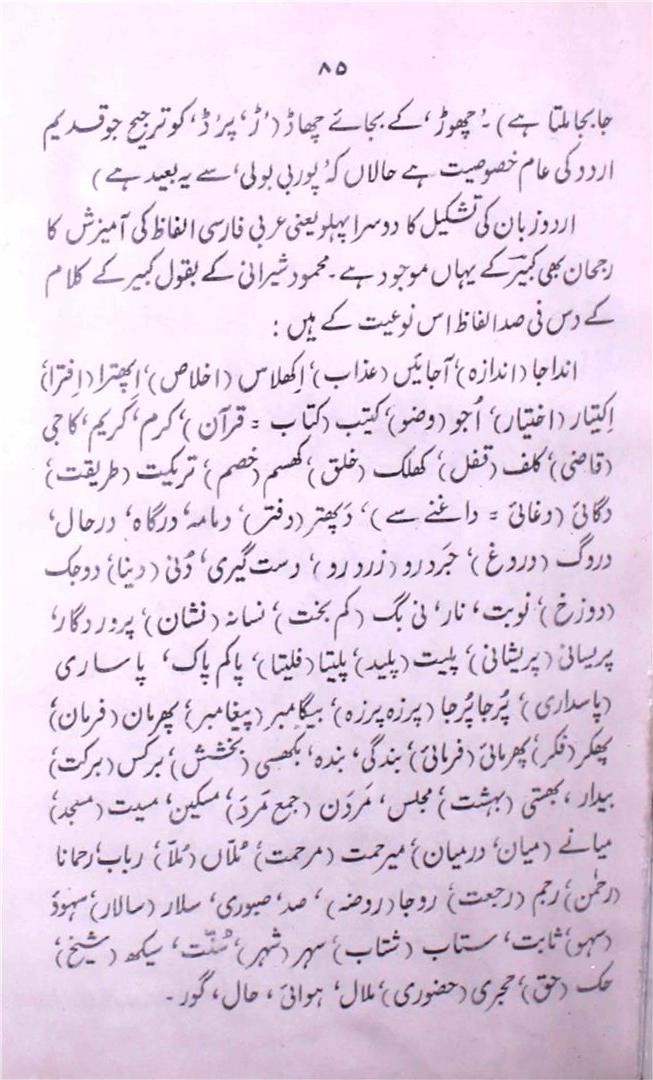 ۸۵
جا بجا ملتا ہے)۔ ’چھوڑ‘ کے بجائے چھاڈ (’ڑ‘ پر ’ڈ‘ کو ترجیح جو قدیم
اردو کی عام خصوصیت ہے حالاں کہ ’پوربی بولی‘ سے یہ بعید ہے)
اردو زبان کی تشکیل کا دوسرا پہلو یعنی عربی فارسی الفاظ کی آمیزش کا
رجحان بھی کبیر کے یہاں موجود ہے۔ محمود شیرانی کے بقول کبیر کے کلام
کے دس فی صد الفاظ اس نوعیت کے ہیں:
انداجا (اندازہ)، آجائیں (عذاب)، اِکھلاس (اخلاص)، اپھترا (اِفترا)،
اِکتیار (اختیار)، اُجو (وضو)، کتیب (کتاب = قرآن)، کرم، کریم، کاجی
(قاضی)، کلف (قفل)، کھلک (خلق)، کھسم (خصم)، تریکت (طریقت)،
دگائی (دغائی = داغنے سے)، دَپھتر (دفتر)، دمامہ، درگاہ، درحال،
دروگ (دروغ)، جَرد رو (زرد رو)، دست گیری، دُنی (دینا)، دوجک
(دوزخ)، نوبت، نار، نی بگ (کم بخت)، نسانہ (نشان)، پروردگار،
پریسانی (پریشانی)، پلیت (پلید)، پلیتا (فلیتا)، پاکم پاک، پاساری
(پاسداری)، پُرجا پُرجا (پرزہ پرزہ)، بیگامبر (پیغامبر)، پھرمان (فرمان)،
پھکر (فکر)، پھرمائی (فرمائی)، بندگی، بندہ، بکھسی (بخشش)، برکس (برکت)،
بیدار، بھتی (بہشت)، مجلس، مَردَن (جمع مَرد)، مسکین، مسیت (مسجد)،
میانے (میان، درمیان)، میرحمت (مرحمت)، مُلّاں (مُلّا)، رباب، رحمانا
(رحمٰن)، رجم (رجعت)، روجا (روضہ)، صد، صبوری، سلار (سالار)، سہوؤ
(سہو)، ثابت، ستاب (شتاب)، سہر (شہر)، سُنّت، سیکھ (شیخ)،
حک (حق)، حجری (حضوری)، ملال، ہوائی، حال، گور۔